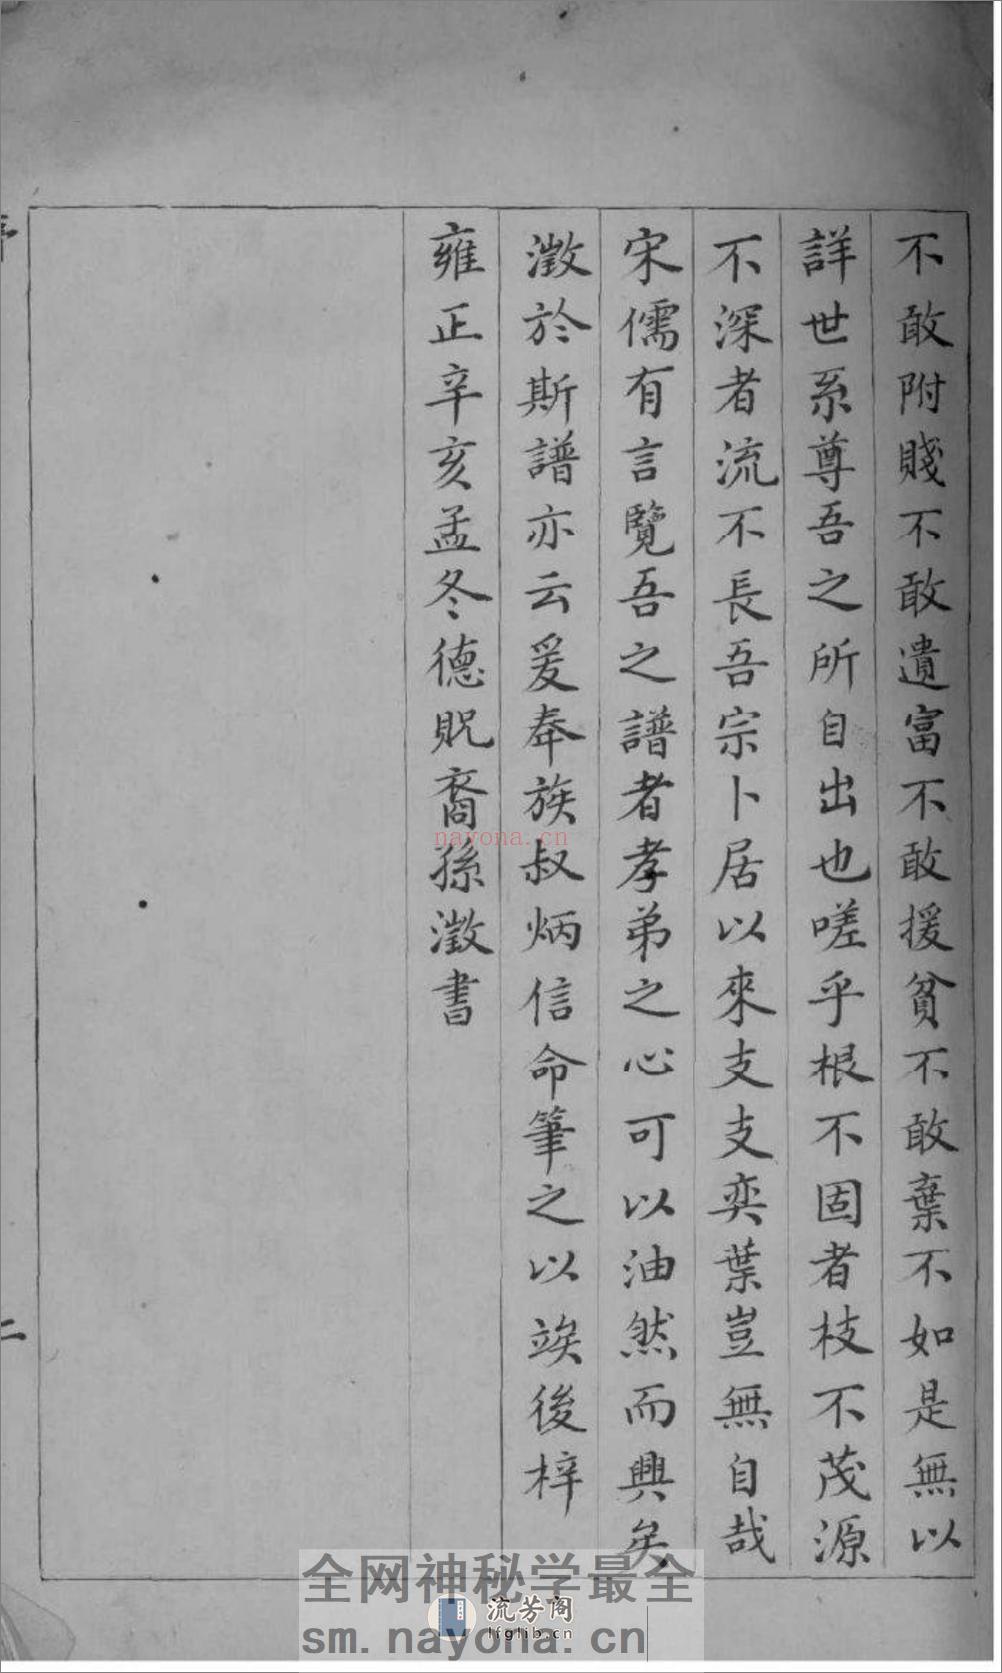 不敢附賤不敢遺富不敢援貧不敢棄不如是無以
詳世系尊吾之所自出也嗟乎根不固者枝不茂源
不深者流不長吾宗卜居以來支支奕葉豈無自哉
宋儒有言覽吾之譜者孝弟之心可以油然而興矣
澂於斯譜亦云爰奉族叔炳信命筆之以竢後梓
雍正辛亥孟冬德貺裔孫澂書
二
nayona.cn
全网神秘学最全
流芳阁
lfglib.cn
sm.nayona.cn